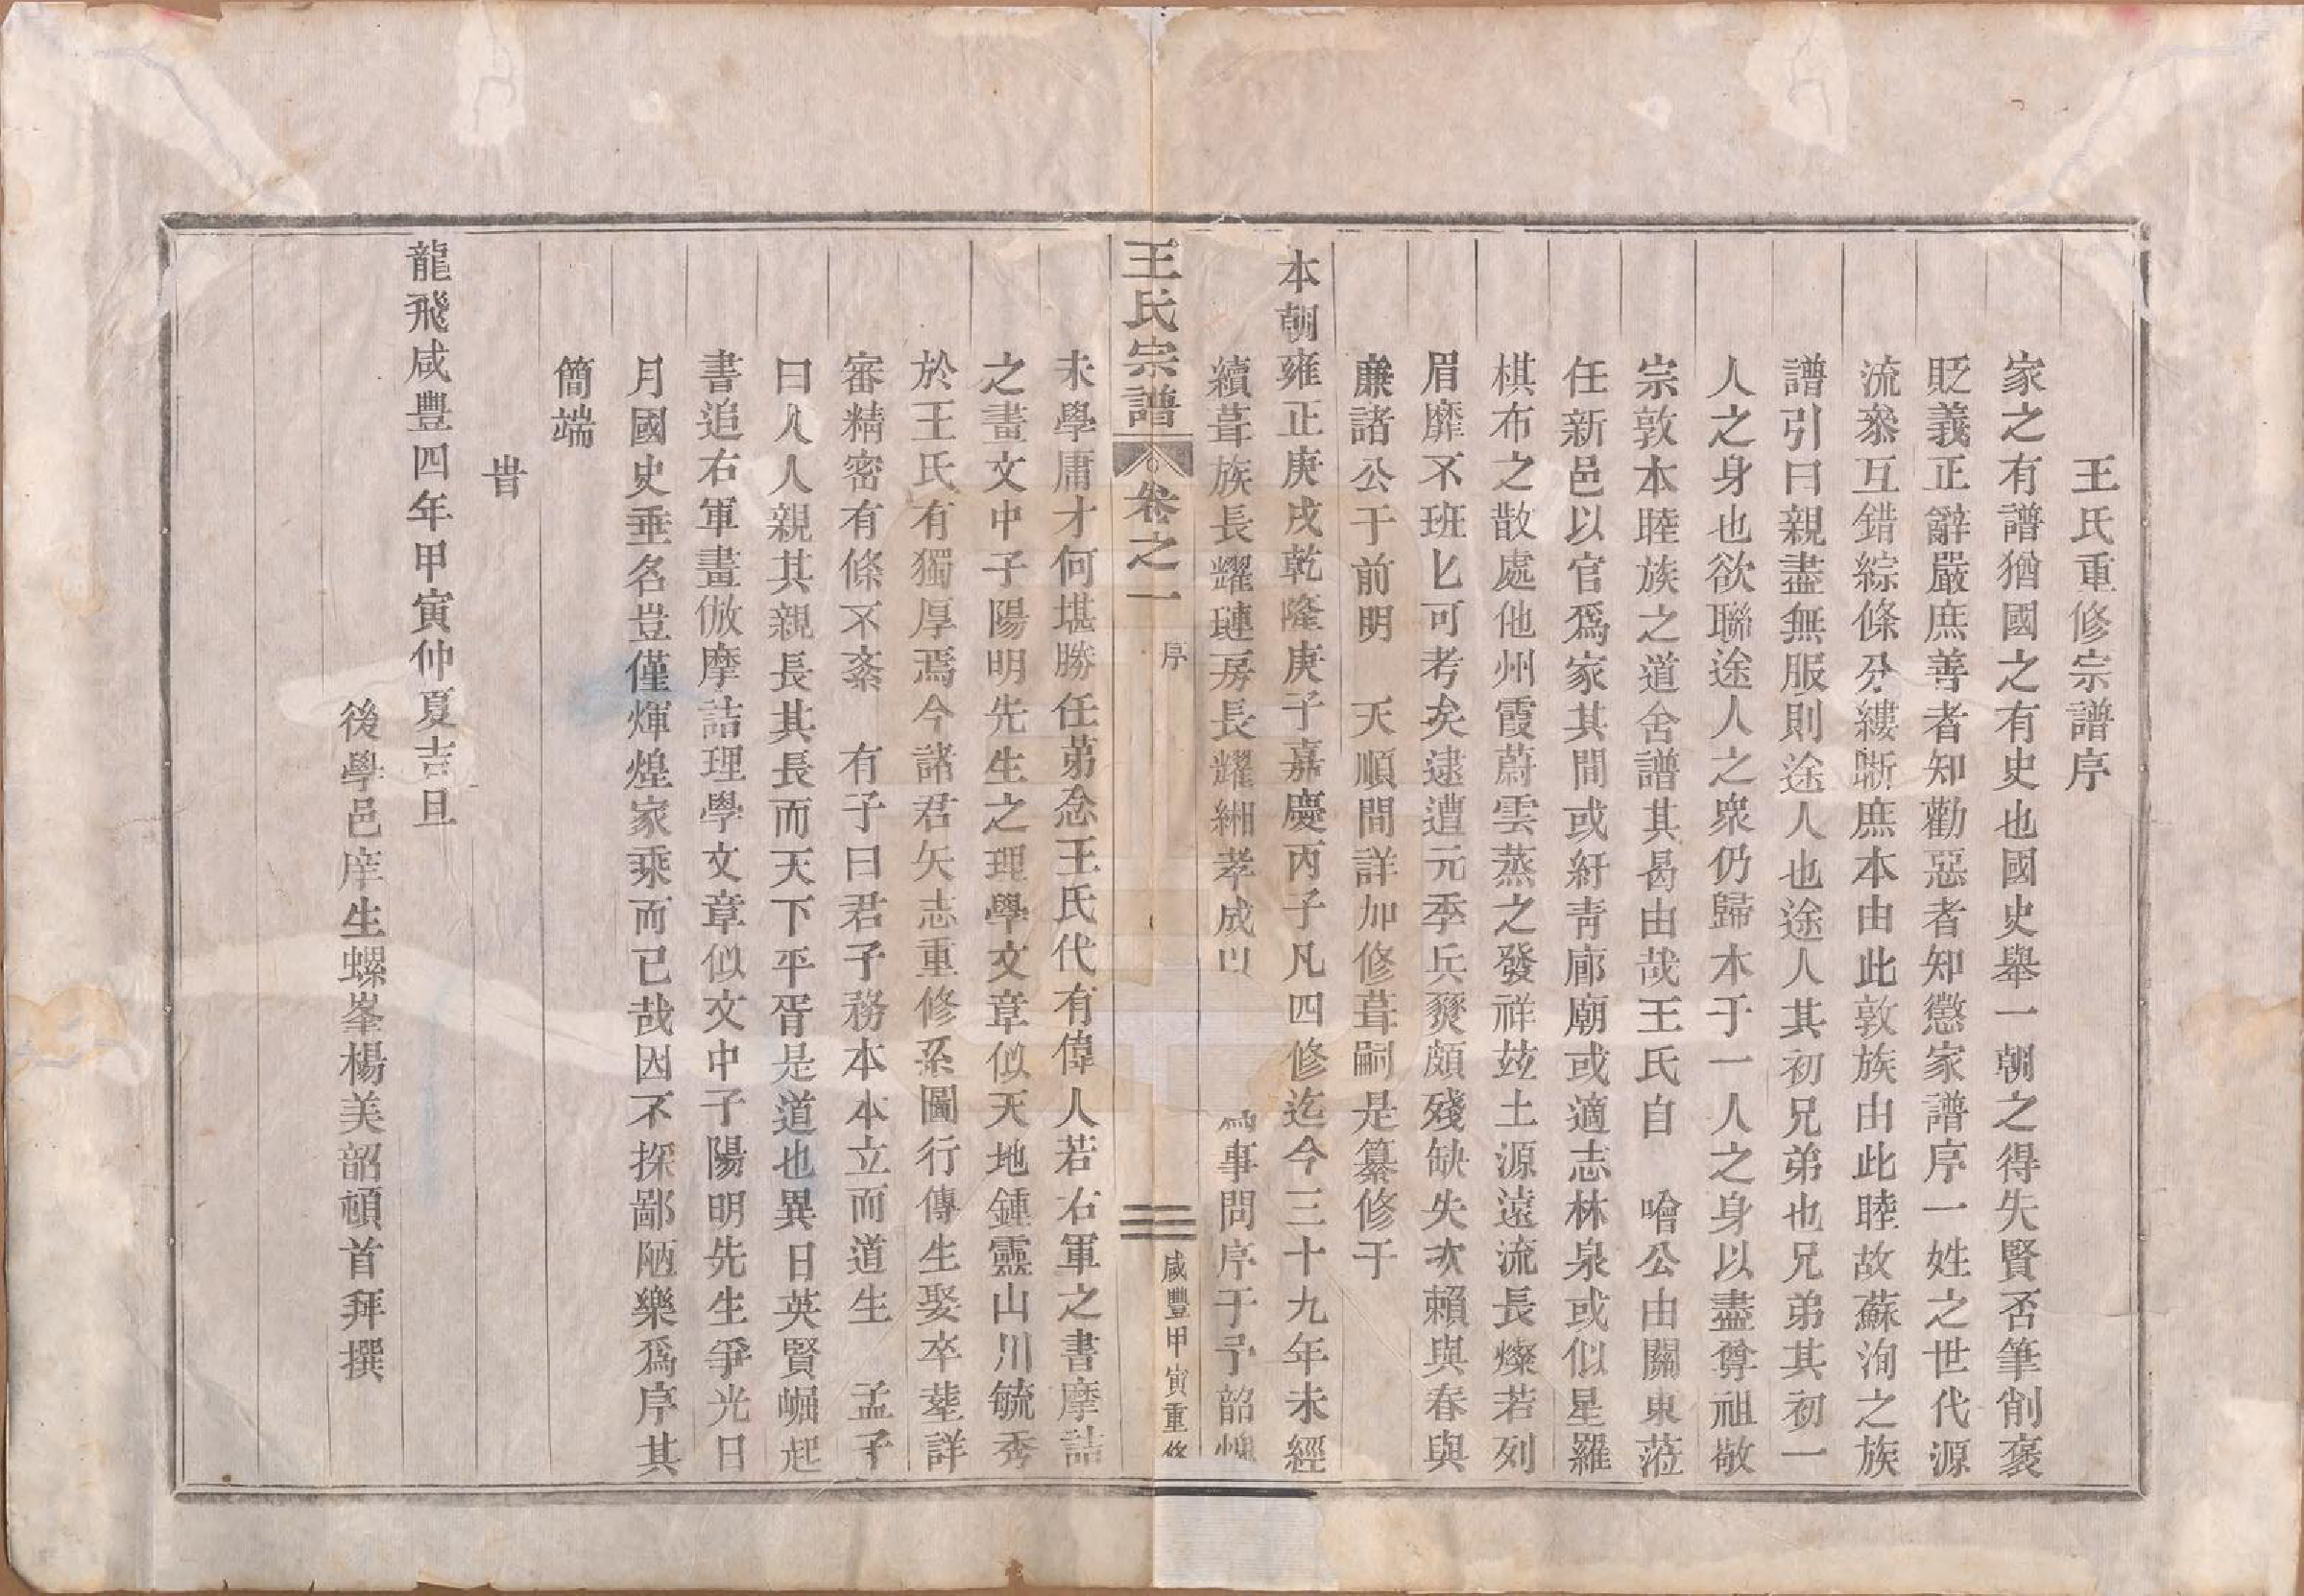 王氏重修宗譜序
家之有譜猶國之有史也國史舉一朝之得失賢否筆削褒
貶義正辭嚴庶善者知勸惡者知懲家譜序一姓之世代源
流叅互錯綜條分縷晰庶本由此敦族由此睦故蘇洵之族
譜引曰親盡無服則途人也途人其初兄弟也兄弟其初一
人之身也欲聯途人之衆仍歸本于一人之身以盡尊祖敬
宗敦本睦族之道舍譜其曷由哉王氏自 噲公由關東蒞
任新邑以官爲家其間或紆靑廊廟或適志林泉或似星羅
棋布之散處他州霞蔚雲蒸之發祥玆土源遠流長燦若列
眉靡不班匕可考矣逮遭元季兵燹頗殘缺失次賴與春與
亷諸公于前明 天順間詳加修葺嗣是纂修于
本朝雍正庚戌乾隆庚子嘉慶丙子凡四修迄今三十九年未經
續葺族長耀璉房長耀緗孝成以 事問序于予韶
王氏宗譜 卷之一 序 三 咸豐甲寅重修
未學庸才何堪勝任苐念王氏代有偉人若右軍之書摩詰
之畫文中子陽明先生之理學文章似天地鍾靈山川毓秀
於王氏有獨厚焉今諸君矢志重修系圖行傳生娶卒塟詳
審精密有條不紊 有子曰君子務本本立而道生 孟子
曰人人親其親長其長而天下平胥是道也異日英賢崛起
書追右軍畫倣摩詰理學文章似文中子陽明先生爭光日
月國史垂名豈僅煇煌家乘而已哉因不揣鄙陋樂爲序其
簡端
旹
龍飛咸豐四年甲寅仲夏吉旦
後學邑庠生螺峯楊美韶頓首拜撰